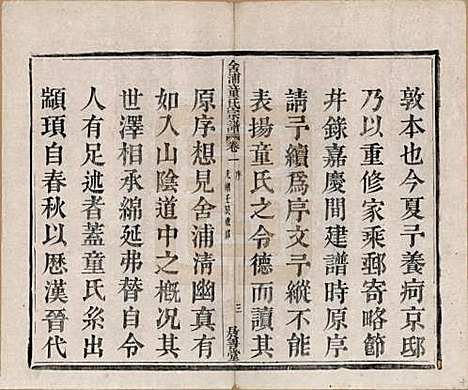 敦本也今夏予養疴京邸
乃以重修家乘郵寄略節
并錄嘉慶間建譜時原序
請予續爲序文予縱不能
表揚童氏之令德而讀其
舍浦童氏宗譜 卷一 序
三
原序想見舍浦清幽真有
如入山陰道中之概况其
世澤相承綿延弗替自令
人有足述者蓋童氏系出
顓頊自春秋以歷漢晉代